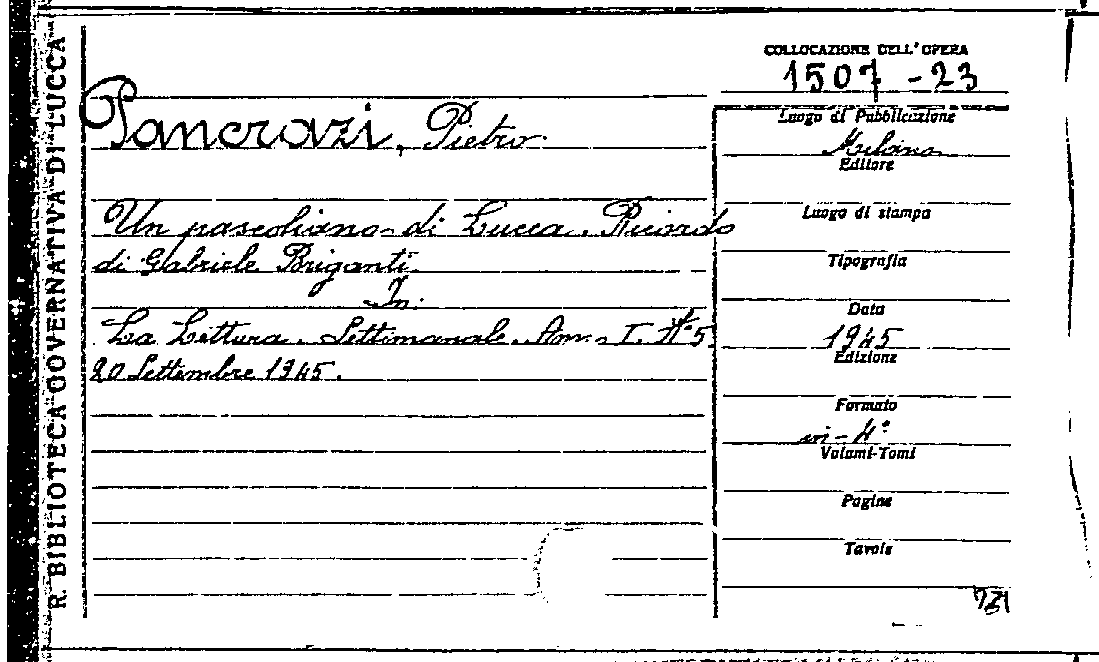 R. BIBLIOTECA GOVERNATIVA DI LUCCA
COLLOCAZIONE DELL'OPERA
1507 - 23
Pancrazi, Pietro.
Un pascoliano di Lucca. Ricordo
di Gabriele Briganti.
In:
La Lettura. Settimanale. Ann. I. N° 5
20 Settembre 1945.
Luogo di Pubblicazione
Milano
Editore
Luogo di stampa
Tipografia
Data
1945
Edizione
Formato
in-4°
Volumi-Tomi
Pagine
Tavole